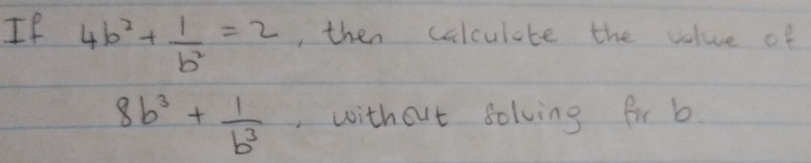 If 4b² + 1/b² = 2, then calculate the value of
8b³ + 1/b³, without solving for b.